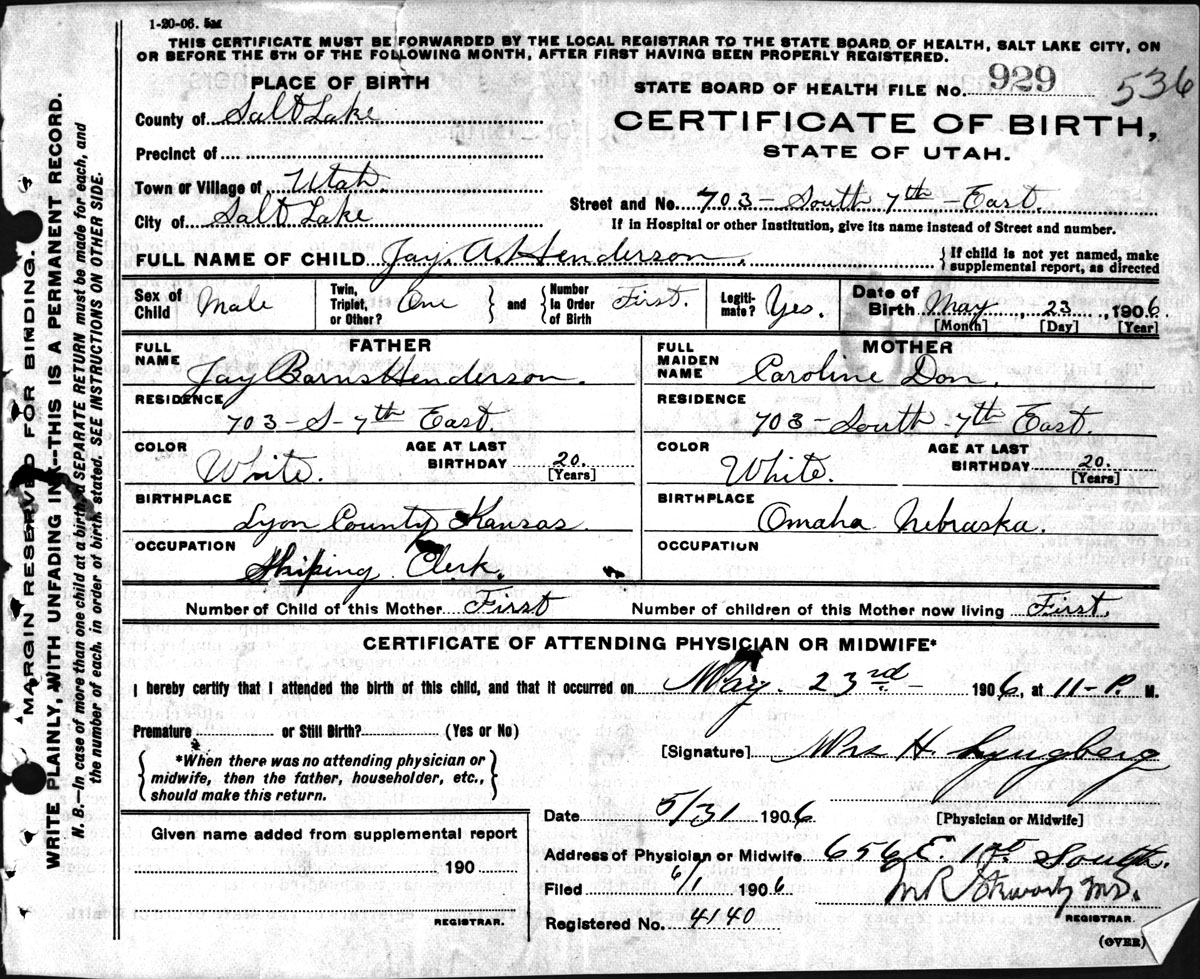 1-20-06. 5M
THIS CERTIFICATE MUST BE FORWARDED BY THE LOCAL REGISTRAR TO THE STATE BOARD OF HEALTH, SALT LAKE CITY, ON
OR BEFORE THE 5TH OF THE FOLLOWING MONTH, AFTER FIRST HAVING BEEN PROPERLY REGISTERED.
PLACE OF BIRTH
STATE BOARD OF HEALTH FILE NO. 929 536
County of Salt Lake
CERTIFICATE OF BIRTH,
STATE OF UTAH.
Precinct of
Town or Village of Utah.
Street and No. 703 - South 7th - East.
City of Salt Lake
If in Hospital or other Institution, give its name instead of Street and number.
FULL NAME OF CHILD Jay. A. Henderson.
If child is not yet named, make
supplemental report, as directed
Sex of Child Male
Twin, Triplet, or Other? One and Number in Order of Birth First.
Legiti-mate? Yes.
Date of Birth May 23, 1906.
[Month] [Day] [Year]
FATHER
FULL NAME Jay Barns Henderson.
RESIDENCE
703 - S - 7th East.
COLOR White.
AGE AT LAST BIRTHDAY 20.
[Years]
BIRTHPLACE
Lyon County Kansas.
OCCUPATION
Shiping Clerk.
MOTHER
FULL MAIDEN NAME Caroline Don.
RESIDENCE
703 - South - 7th East.
COLOR White.
AGE AT LAST BIRTHDAY 20.
[Years]
BIRTHPLACE
Omaha Nebraska.
OCCUPATION
Number of Child of this Mother First Number of children of this Mother now living First.
CERTIFICATE OF ATTENDING PHYSICIAN OR MIDWIFE*
I hereby certify that I attended the birth of this child, and that it occurred on May. 23rd - 1906, at 11 - P. M.
Premature or Still Birth? (Yes or No)
[Signature] Mrs H. Lyngberg
*When there was no attending physician or
midwife, then the father, householder, etc.,
should make this return.
Date 5/31 1906
[Physician or Midwife]
Given name added from supplemental report
190
REGISTRAR.
Address of Physician or Midwife 656 E. 1st South.
Filed 6/1 1906
M.D.
REGISTRAR.
Registered No. 4140
(OVER)
MARGIN RESERVED FOR BINDING.
WRITE PLAINLY, WITH UNFADING INK--THIS IS A PERMANENT RECORD.
N. B.—In case of more than one child at a birth, a SEPARATE RETURN must be made for each, and
the number of each, in order of birth, stated. SEE INSTRUCTIONS ON OTHER SIDE.